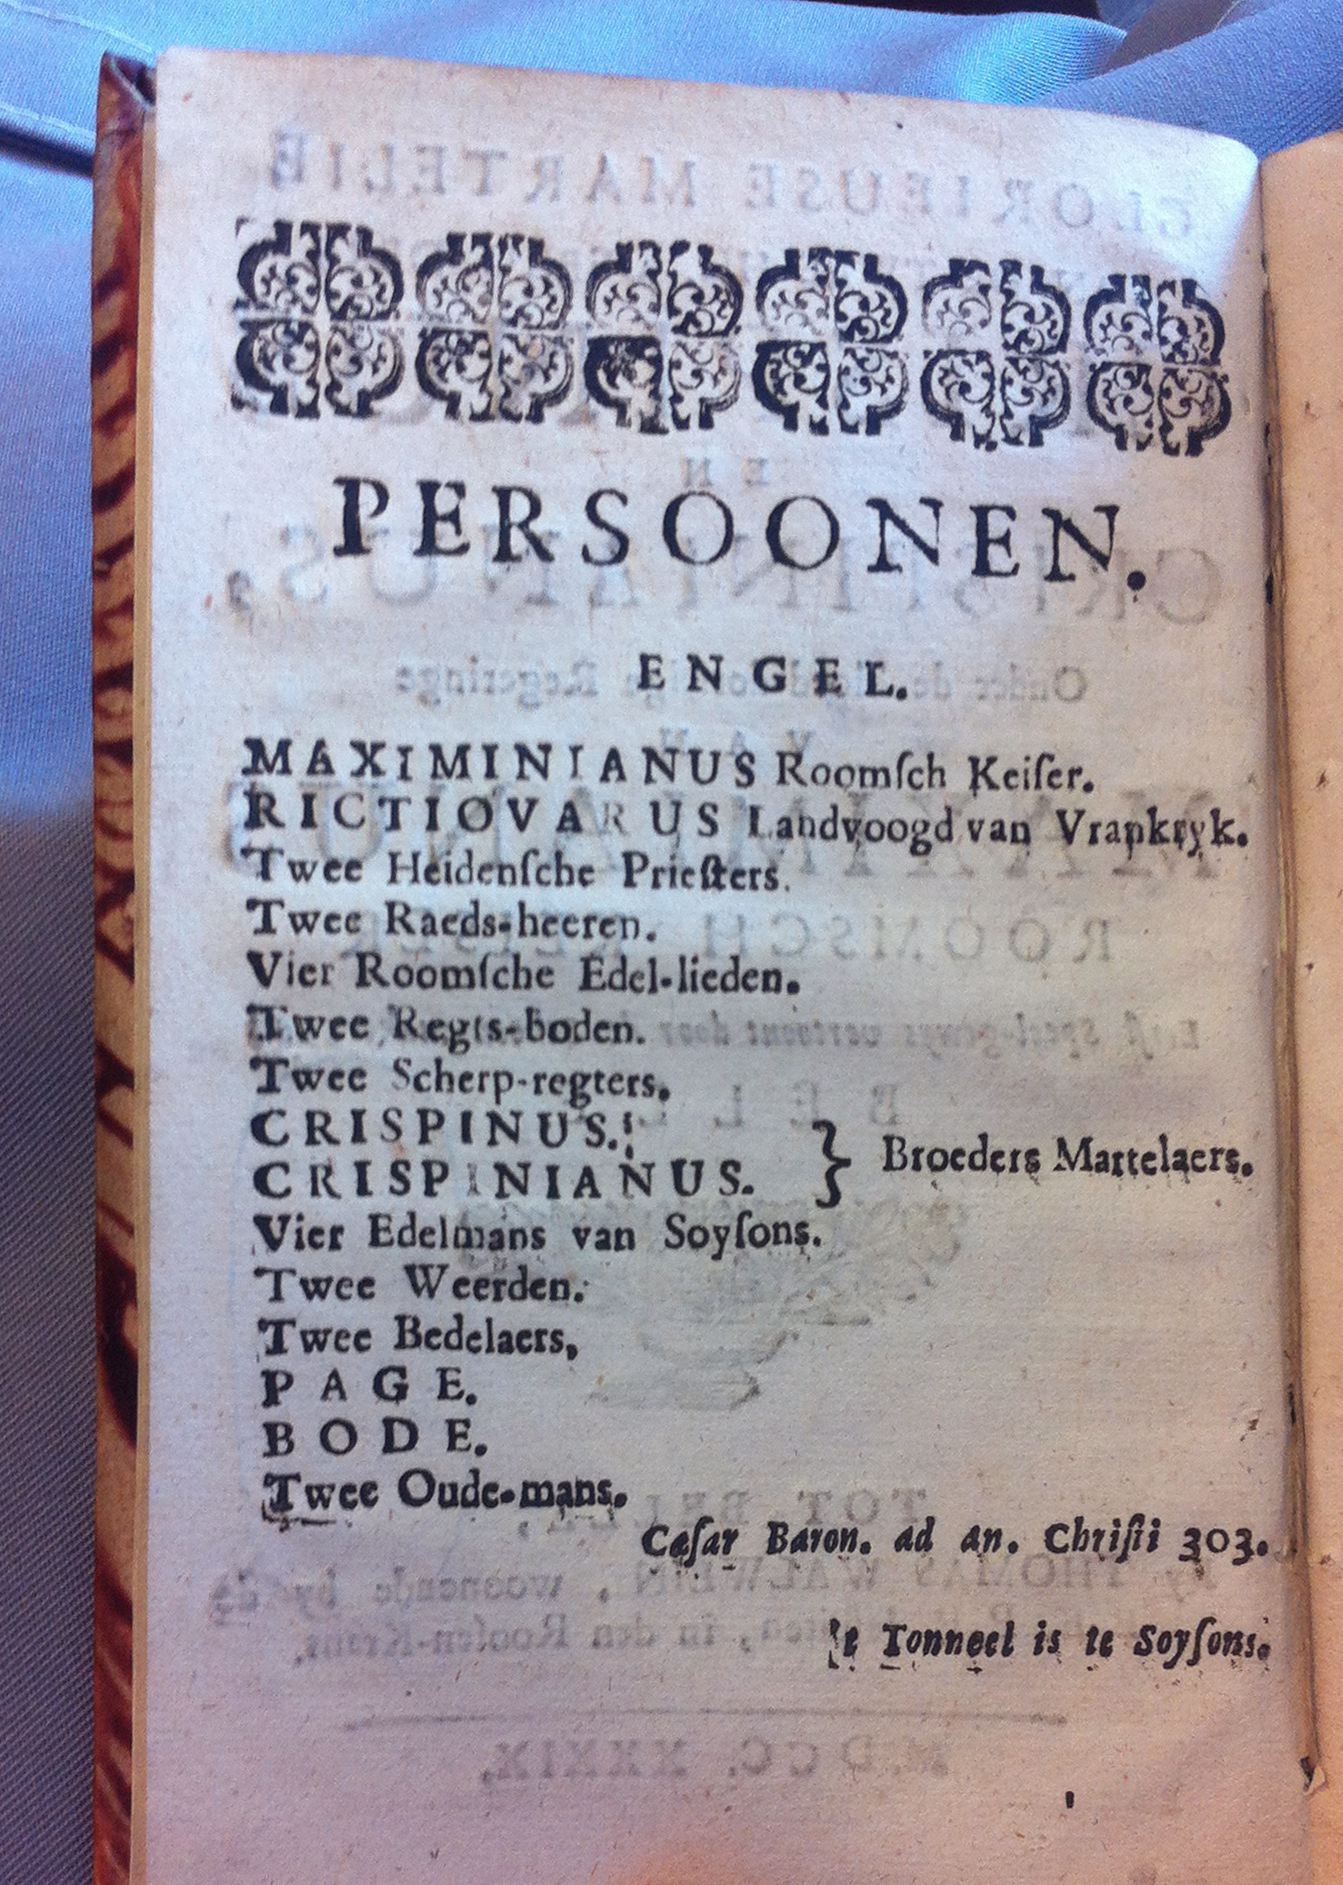 PERSOONEN.
ENGEL.
MAXIMINIANUS Roomſch Keiſer.
RICTIOVARUS Landvoogd van Vrankryk.
Twee Heidenſche Prieſters.
Twee Raeds-heeren.
Vier Roomſche Edel-lieden.
Twee Regts-boden.
Twee Scherp-regters.
CRISPINUS.
CRISPINIANUS. } Broeders Martelaers.
Vier Edelmans van Soyſons.
Twee Weerden.
Twee Bedelaers,
PAGE.
BODE.
Twee Oude-mans.
Cæſar Baron. ad an. Chriſti 303.
't Tonneel is te Soyſons.